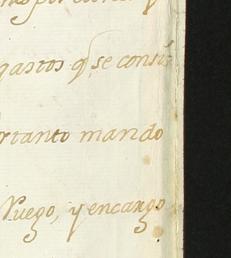 gastos q̃ se consi
rtanto mando
Ruego, y encargo